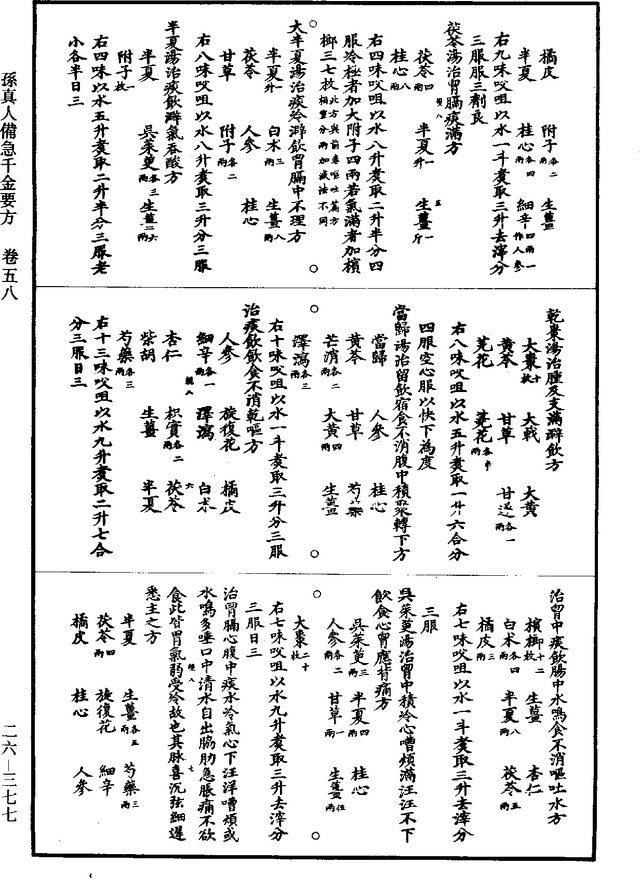 孫真人備急千金要方　卷五八
二六—三七七
橘皮　附子各二兩　生薑
半夏　桂心各四兩　細辛四兩一作人參
右九味㕮咀以水一斗煑取三升去滓分
三服服三劑良
茯苓湯治胃膈痰滿方
茯苓四兩　半夏一升　生薑一斤
桂心八兩
右四味㕮咀以水八升煑取二升半分四
服冷極者加大附子四兩若氣滿者加檳
榔三七枚此方與前卷嘔吐篇方相重分兩加減法不同
大半夏湯治痰冷澼飲胃膈中不理方
半夏一升　白术三兩　生薑八兩
茯苓　人參　桂心
甘草　附子各二兩
右八味㕮咀以水八升煑取三升分三服
半夏湯治痰飲澼氣吞酸方
半夏　吳茱萸各三兩　生薑六兩
附子一枚
右四味以水五升煑取二升半分三服老
小各半日三
乾棗湯治腫及支滿澼飲方
大棗十枚　大戟　大黃
黃芩　甘草　甘遂各一兩
芫花　蕘花各半兩
右八味㕮咀以水五升煑取一升六合分
四服空心服以快下為度
當歸湯治留飲宿食不消腹中積聚轉下方
當歸　人參　桂心
黃芩　甘草　芍藥
芒消各二兩　大黃四兩　生薑
澤瀉各三兩
右十味㕮咀以水一斗煑取三升分三服
治痰飲飲食不消乾嘔方
人參　旋復花　橘皮
細辛各一兩　澤瀉　白术
杏仁　枳實各二兩　茯苓
柴胡　生薑　半夏
芍藥各三兩
右十三味㕮咀以水九升煑取二升七合
分三服日三
治胃中痰飲腸中水鳴食不消嘔吐水方
檳榔十二枚　生薑　杏仁
白术各四兩　半夏八兩　茯苓五兩
橘皮三兩
右七味㕮咀以水一斗煑取三升去滓分
三服
吳茱萸湯治胃中積冷心嘈煩滿汪汪不下
飲食心胃應背痛方
吳茱萸三兩　半夏四兩　桂心
人參各二兩　甘草一兩　生薑伍兩
大棗二十枚
右七味㕮咀以水九升煑取三升去滓分
三服日三
治胃膈心腹中痰水冷氣心下汪洋嘈煩或
水鳴多唾口中清水自出脇肋急脹痛不欲
食此皆胃氣弱受冷故也其脉喜沉弦細遲
悉主之方
半夏　生薑各五兩　芍藥三兩
茯苓四兩　旋復花　細辛
橘皮　桂心　人參